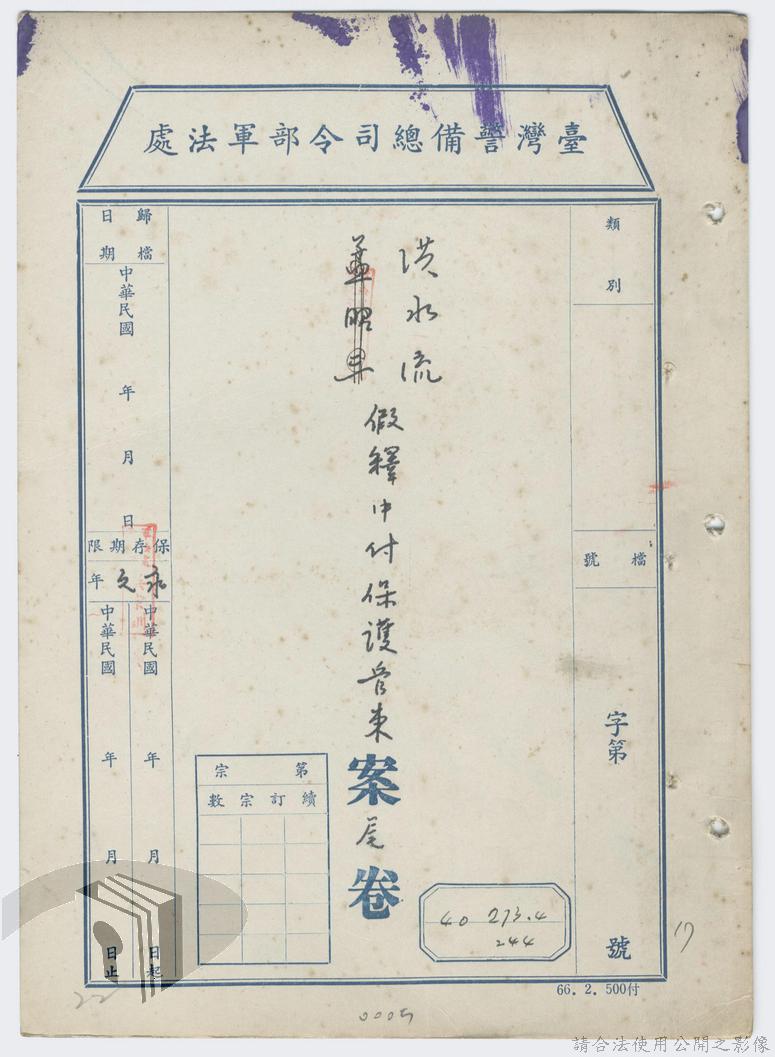 臺灣警備總司令部軍法處
類別
檔號
字第
號
洪水流
昭
假釋中付保護管束
案
尾
卷
第 宗
續訂宗數
40 273.4
244
歸檔日期
中華民國 年 月 日
保存期限
永久年
中華民國 年 月 日起
中華民國 年 月 日止
66. 2. 500付
17
22
0005
請合法使用公開之影像